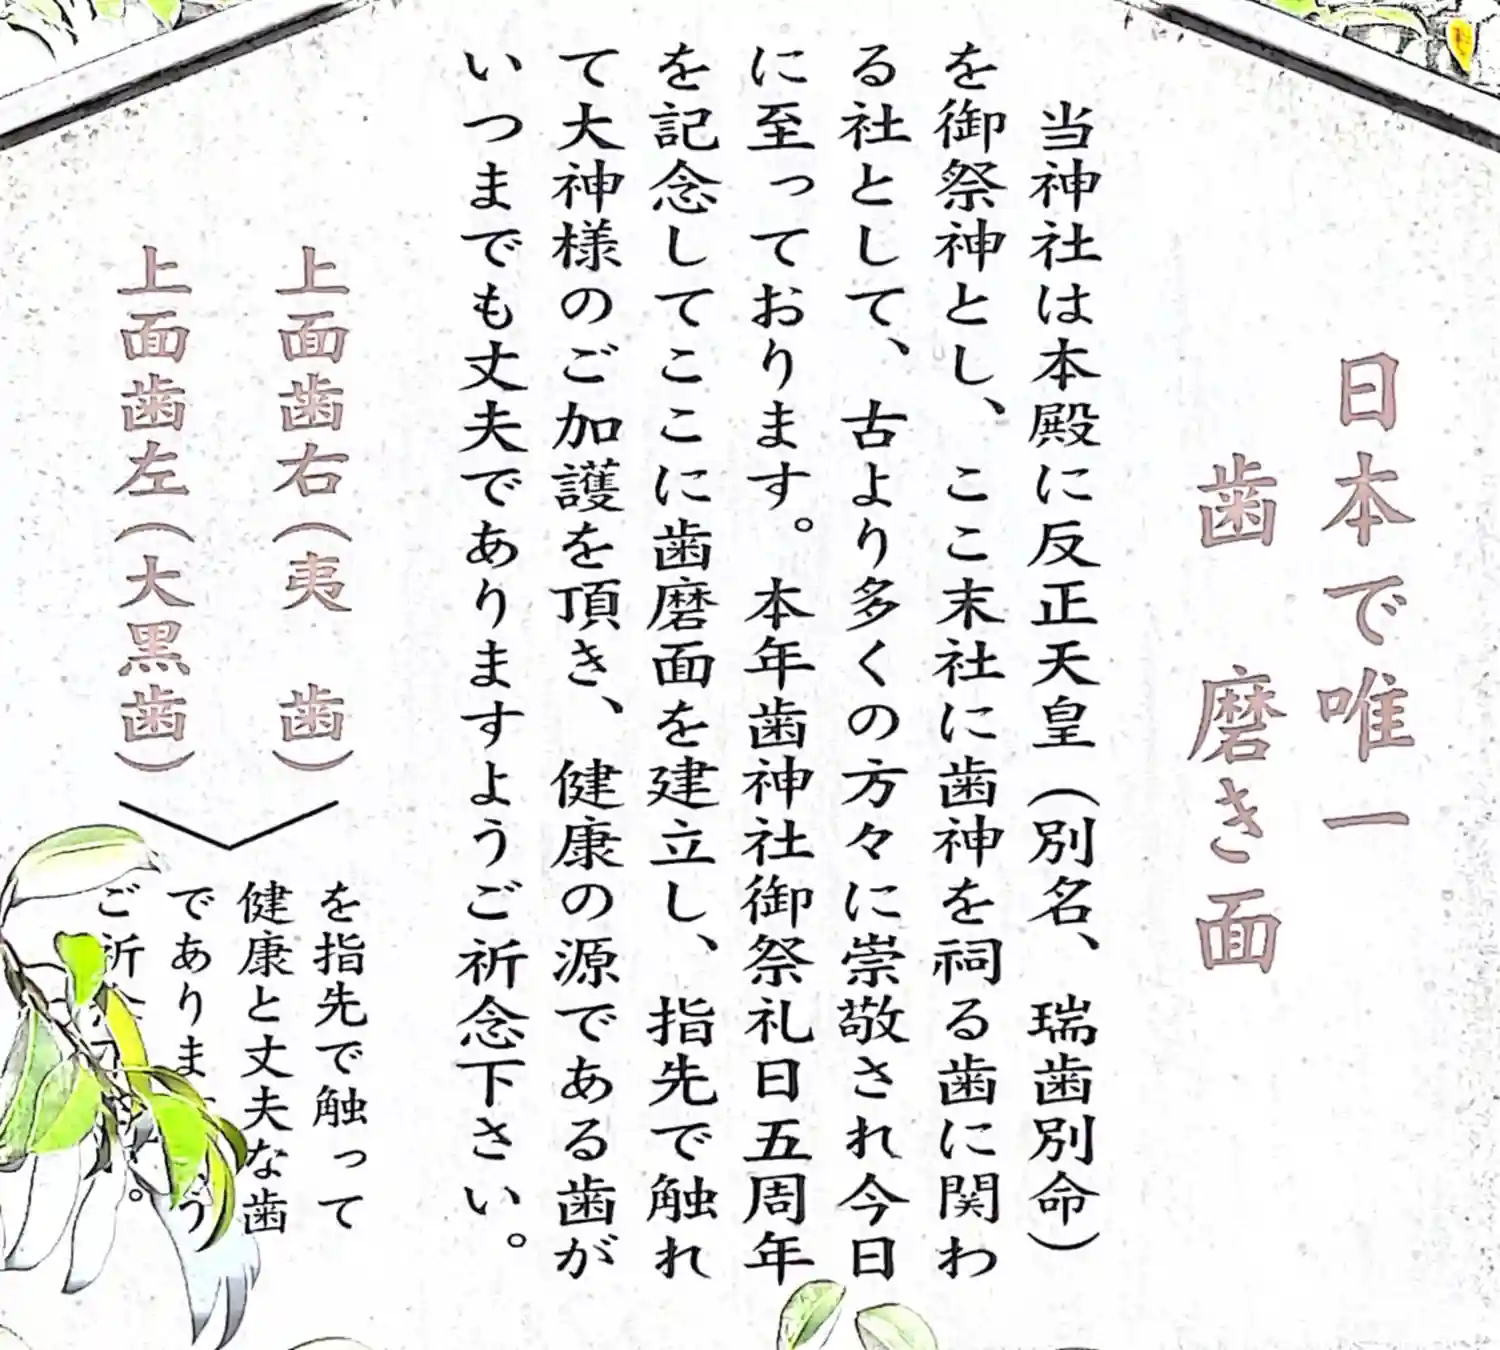 日本で唯一
歯 磨き面
当神社は本殿に反正天皇(別名、瑞歯別命)
を御祭神とし、ここ末社に歯神を祠る歯に関わ
る社として、古より多くの方々に崇敬され今日
に至っております。本年歯神社御祭礼日五周年
を記念してここに歯磨面を建立し、指先で触れ
て大神様のご加護を頂き、健康の源である歯が
いつまでも丈夫でありますようご祈念下さい。
上面歯右(夷 歯)
上面歯左(大黒歯)
を指先で触って
健康と丈夫な歯
でありま う
ご祈 。